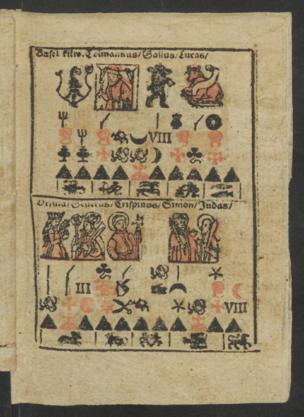 Basel kilw. Colmannus/ Gallus/ Lucas/
VIII
Ursula/ Severus/ Crispinus/ Simon/ Judas/
III
VIII